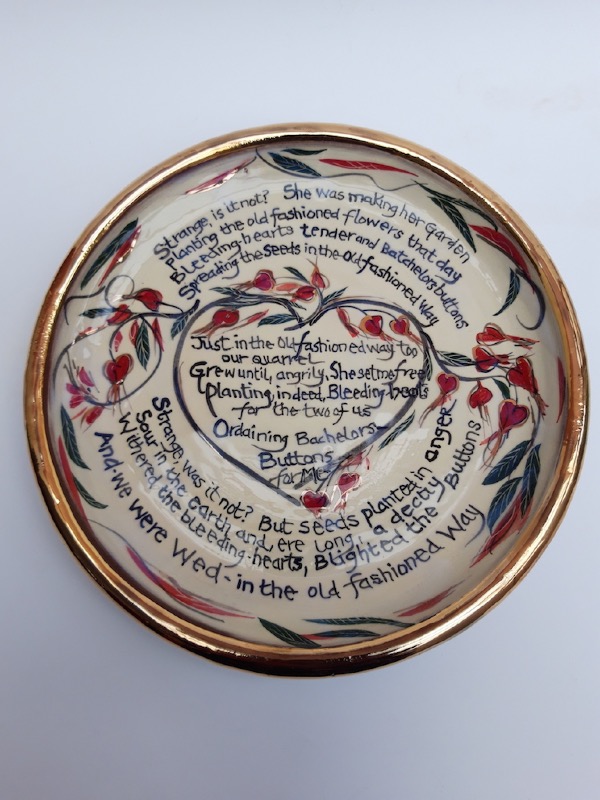 Strange, is it not? She was making her Garden
Planting the old fashioned flowers that day
Bleeding-hearts tender and Batchelors buttons
Spreading the Seeds in the Old fashioned Way
Just in the Old fashioned way too
our quarrel
Grew until, angrily, She set me free
Planting, indeed, Bleeding-hearts
for the two of us
Ordaining Bachelors-
Buttons
for Me
Strange, was it not? But seeds planted in anger
Sour in the earth and, ere long, a decay
Withered the bleeding-hearts, Blighted the Buttons
And we were Wed-in the old fashioned Way